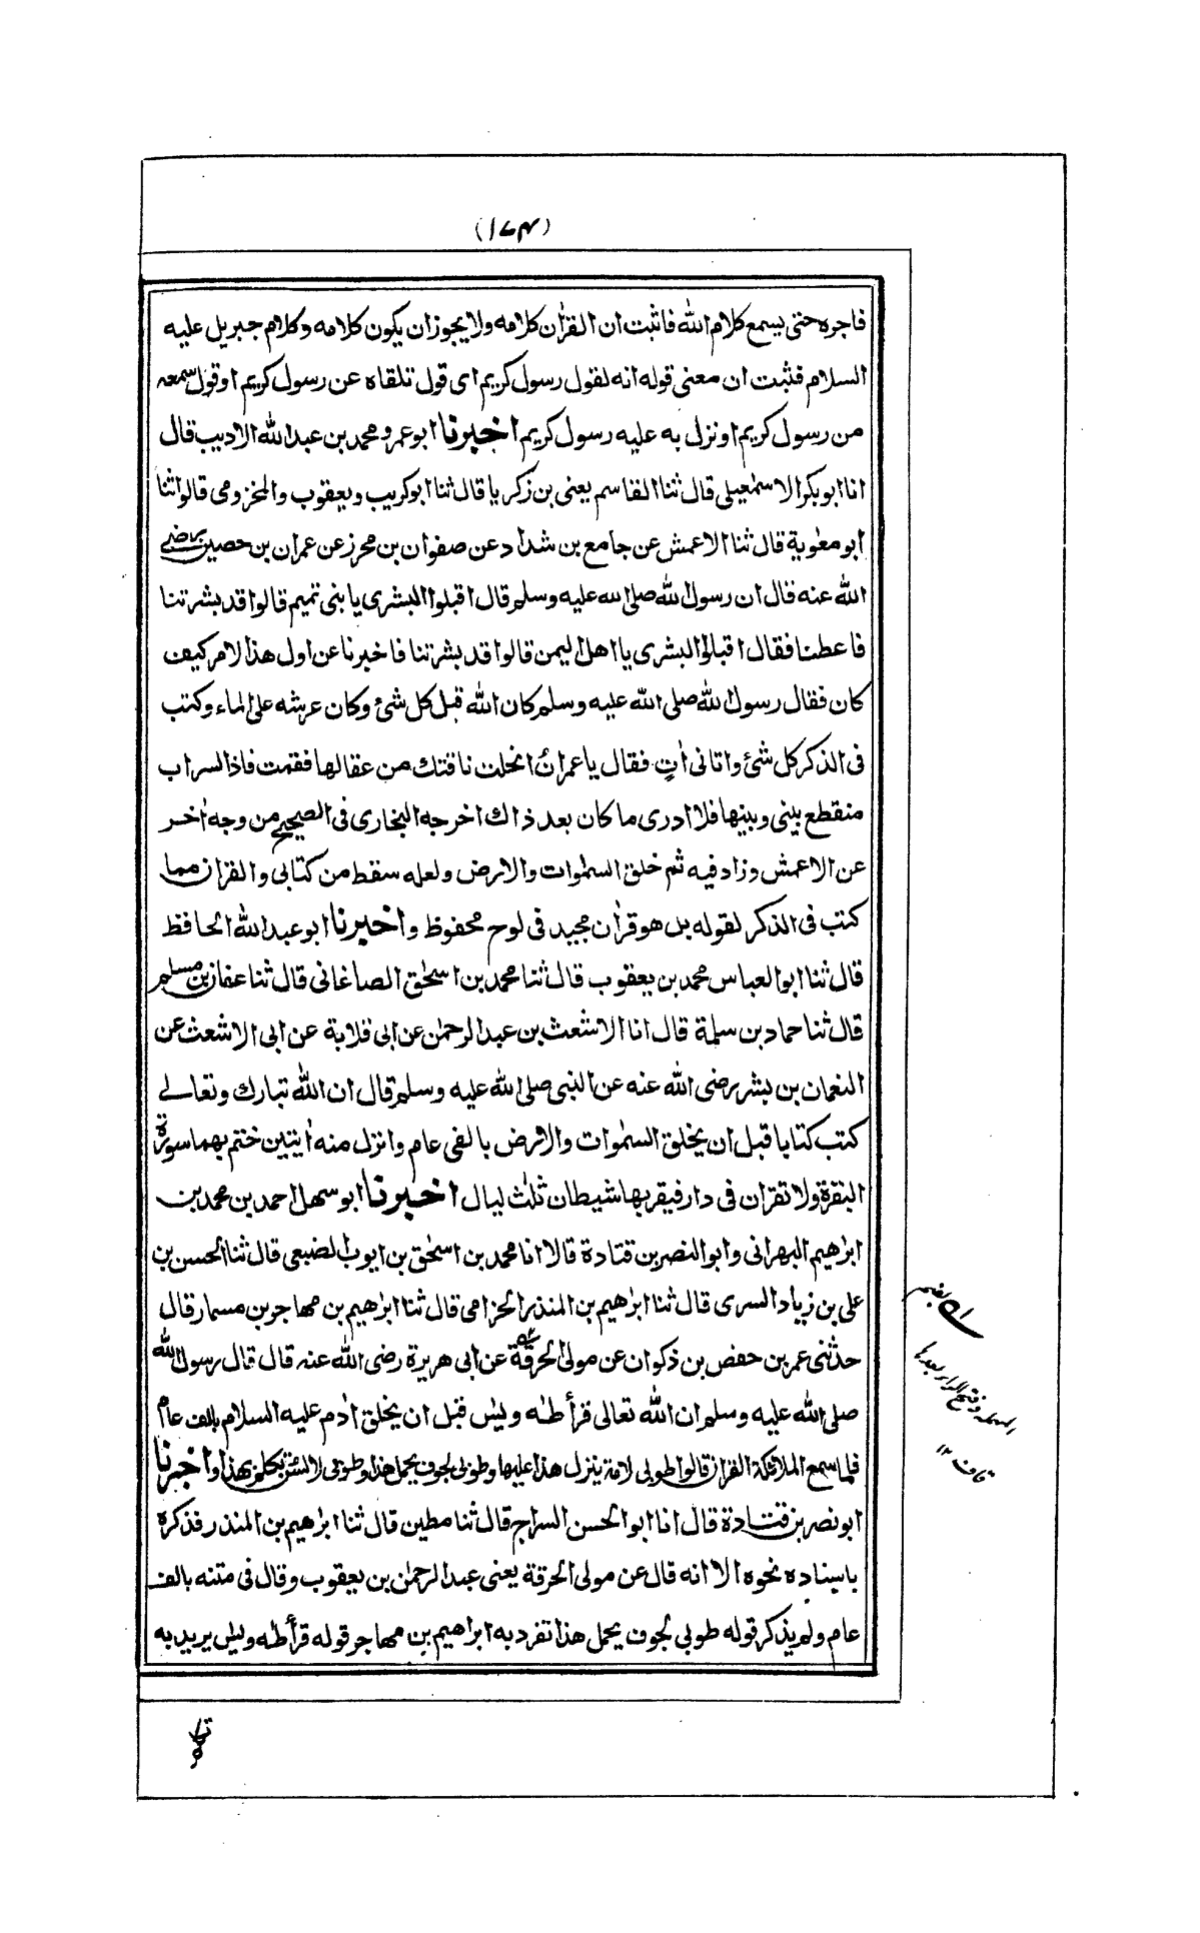 (١٧٤)
فاجره حتى يسمع كلام الله فاثبت ان القرأن كلامه ولا يجوز ان يكون كلامه وكلام جبريل عليه
السلام فثبت ان معنى قوله انه لقول رسول كريم اى قول تلقاه عن رسول كريم او قول سمعه
من رسول كريم او نزل به عليه رسول كريم اخبرنا ابو عمرو محمد بن عبد الله الاديب قال
انا ابو بكر الاسمٰعيلى قال ثنا القاسم يعنى بن زكريا قال ثنا ابو كريب ويعقوب والمخزومى قالوا ثنا
ابو معٰوية قال ثنا الاعمش عن جامع بن شداد عن صفوان بن محرز عن عمران بن حصين رضى
الله عنه قال ان رسول الله صلى الله عليه وسلم قال اقبلوا البشرى يا بنى تميم قالوا قد بشرتنا
فاعطنا فقال اقبلوا البشرى يا اهل اليمن قالوا قد بشرتنا فاخبرنا عن اول هذا الامر كيف
كان فقال رسول الله صلى الله عليه وسلم كان الله قبل كل شئ وكان عرشه على الماء وكتب
فى الذكر كل شئ واتانى اٰتٍ فقال يا عمران انحلت ناقتك من عقالها فقمت فاذا السراب
منقطع بينى وبينها فلا ادرى ما كان بعد ذاك اخرجه البخارى فى الصحيح من وجه اٰخر
عن الاعمش وزاد فيه ثم خلق السمٰوات والارض ولعله سقط من كتابى والقران مما
كتب فى الذكر لقوله بل هو قرأن مجيد فى لوح محفوظ واخبرنا ابو عبد الله الحافظ
قال ثنا ابو العباس محمد بن يعقوب قال ثنا محمد بن اسحٰق الصاغانى قال ثنا عفان بن مسلم
قال ثنا حماد بن سلمة قال انا الاشعث بن عبد الرحمٰن عن ابى قلابة عن ابى الاشعث عن
النعمان بن بشر رضى الله عنه عن النبى صلى الله عليه وسلم قال ان الله تبارك وتعالى
كتب كتابا قبل ان يخلق السمٰوات والارض بالفى عام وانزل منه اٰيتين ختم بهما سورة
البقرة ولا تقرأن فى دار فيقربها شيطان ثلٰث ليال اخبرنا ابو سهل احمد بن محمد بن
ابرٰهيم المهرانى وابو النصر بن قتادة قالا انا محمد بن اسحٰق بن ايوب الضبعى قال ثنا الحسن بن
على بن زياد السرى قال ثنا ابرٰهيم بن المنذر الحزامى قال ثنا ابرٰهيم بن مهاجر بن مسمار قال
حدثنى عمر بن حفص بن ذكوان عن مولى الحرقة عن ابى هريرة رضى الله عنه قال قال رسول الله
صلى الله عليه وسلم ان الله تعالى قرأ طٰه ويٰس قبل ان يخلق اٰدم عليه السلام بالف عام
فلما سمع الملائكة القران قالوا طوبى لامة ينزل هذا عليها وطوبى لجوف يحمل هذا وطوبى لالسن تكلم بهذا واخبرنا
ابو نصر بن قتادة قال انا ابو الحسن السراج قال ثنا مطين قال ثنا ابرٰهيم بن المنذر فذكره
باسناده نحوه الا انه قال عن مولى الحرقة يعنى عبد الرحمٰن بن يعقوب وقال فى متنه بالف
عام ولم يذكر قوله طوبى لجوف يحمل هذا تفرد به ابراهيم بن مهاجر قوله قرأ طٰه ويٰس يريد به
بضم
المهملة وفتح الراء بعدها
قاف ١٢